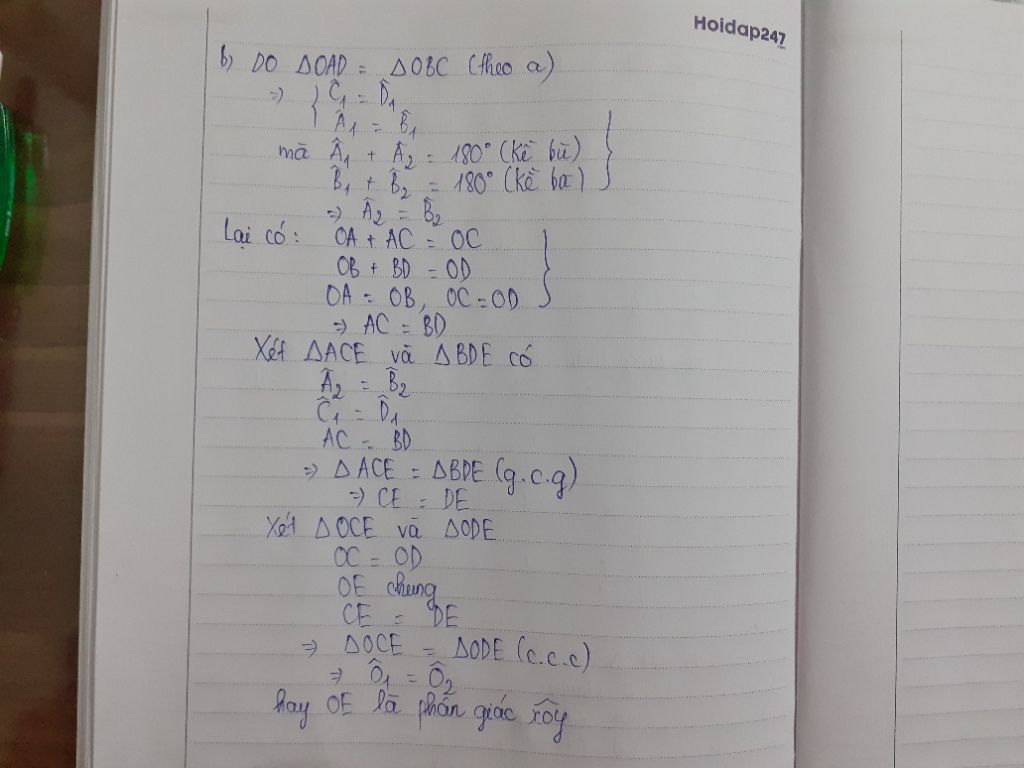 Hoidap247
b) DO ΔOAD = ΔOBC (theo a)
=> { Ĉ₁ = D̂₁
Â₁ = B̂₁
mà Â₁ + Â₂ = 180° (kề bù)
B̂₁ + B̂₂ = 180° (kề bù) }
=> Â₂ = B̂₂
Lại có: OA + AC = OC
OB + BD = OD
OA = OB, OC = OD }
=> AC = BD
Xét ΔACE và ΔBDE có
Â₂ = B̂₂
Ĉ₁ = D̂₁
AC = BD
=> ΔACE = ΔBDE (g.c.g)
=> CE = DE
Xét ΔOCE và ΔODE
OC = OD
OE chung
CE = DE
=> ΔOCE = ΔODE (c.c.c)
=> Ô₁ = Ô₂
hay OE là phân giác xÔy